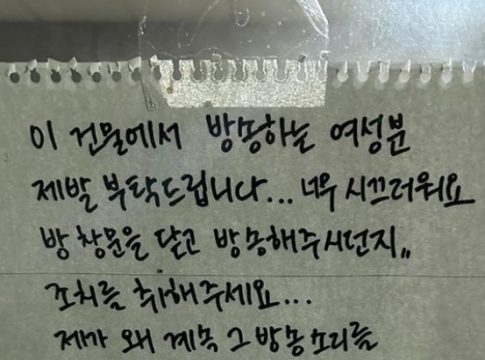 이 건물에서 방송하는 여성분
제발 부탁드립니다... 너무 시끄러워요
방 창문을 닫고 방송해주시던지,,
조치를 취해주세요...
제가 왜 계속 그 방송소리를